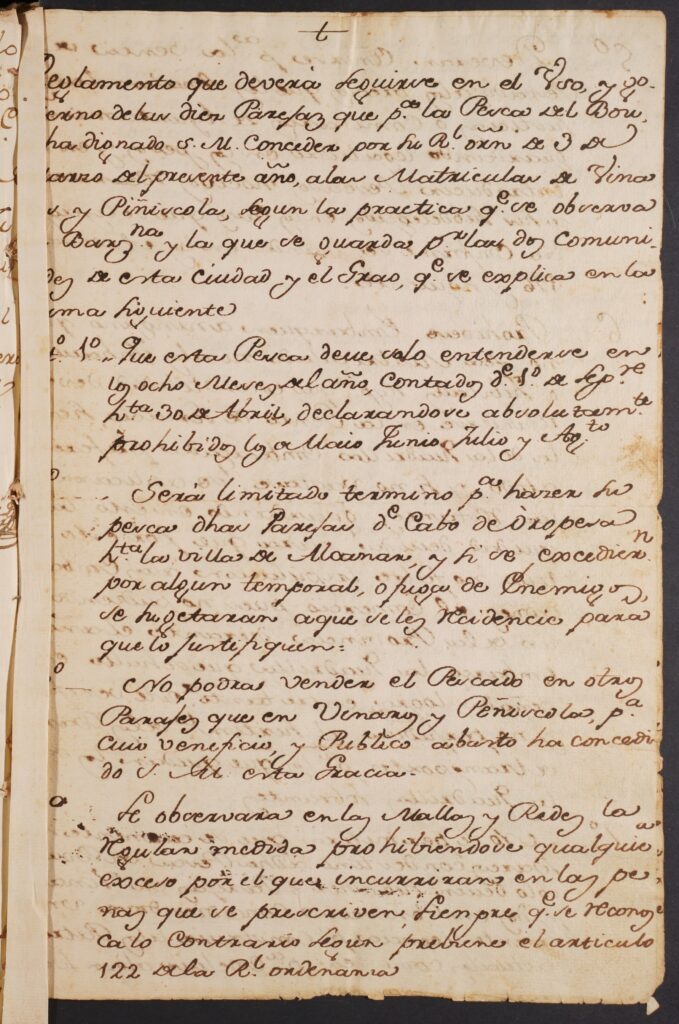 t
eglamento que deverá seguirse en el Vso, y go-
erno delas diez Parejas que p.ª la Pesca del Bou,
ha dignado S. M. Conceder por su R.l orñ de 3 de
arzo del presente año, alas Matriculas de Vina
s y Piñiscola, segun la practica q.e se observa
Barz.na y la que se guarda p.r las dos Comuni-
des de esta Ciudad y el Grao, q.e se explica en la
rma siguiente
º. 1º. Que esta Pesca deve solo entenderse en
los ocho Meses del año, contados d.e 1º. de Sep.re
h.ta 30 de Abril, declarandose absolutam.te
prohibidos los de Maio Junio Julio y Ag.to
º Será limitado termino p.ª hazer su
pesca dhas Parejas d.e Cabo de Oropesa
h.ta la villa de Alcanar, y si se excedier.n
por algun temporal, o fuga de Enemigos,
se sugetaran aque seles Residencie para
que lo justifiquen=
º No podra vender el Pescado en otros
Parajes que en Vinaroz y Peñiscola, p.ª
cuio veneficio, y Publico abasto ha concedi-
do S. M. esta Gracia.
º Se observara en las Mallas y Redes la
Regular medida prohibiendose qualquie.ª
exceso por el que incurriran en las pe-
nas que se prescriven, siempre q.e se Reconoz
ca lo Contrario segun prebiene el articulo
122 dela R.l ordenanza